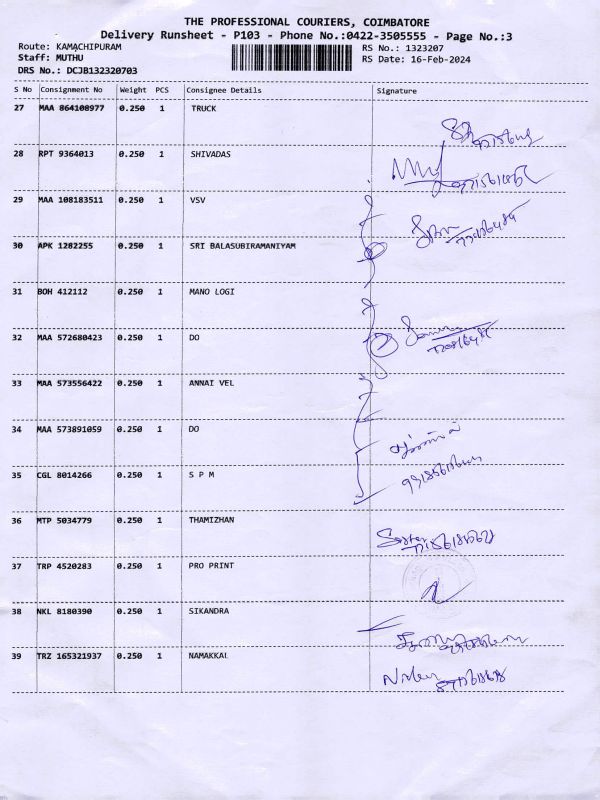 THE PROFESSIONAL COURIERS, COIMBATORE
Delivery Runsheet - P103 - Phone No.:0422-3505555 - Page No.:3
Route: KAMACHIPURAM RS No.: 1323207
Staff: MUTHU RS Date: 16-Feb-2024
DRS No.: DCJB132320703
S No Consignment No Weight PCS Consignee Details Signature
27 MAA 864108977 0.250 1 TRUCK
28 RPT 9364013 0.250 1 SHIVADAS
29 MAA 108183511 0.250 1 VSV
30 APK 1282255 0.250 1 SRI BALASUBIRAMANIYAM
31 BOH 412112 0.250 1 MANO LOGI
32 MAA 572680423 0.250 1 DO
33 MAA 573556422 0.250 1 ANNAI VEL
34 MAA 573891059 0.250 1 DO
35 CGL 8014266 0.250 1 S P M
36 MTP 5034779 0.250 1 THAMIZHAN
37 TRP 4520283 0.250 1 PRO PRINT
38 NKL 8180390 0.250 1 SIKANDRA
39 TRZ 165321937 0.250 1 NAMAKKAL